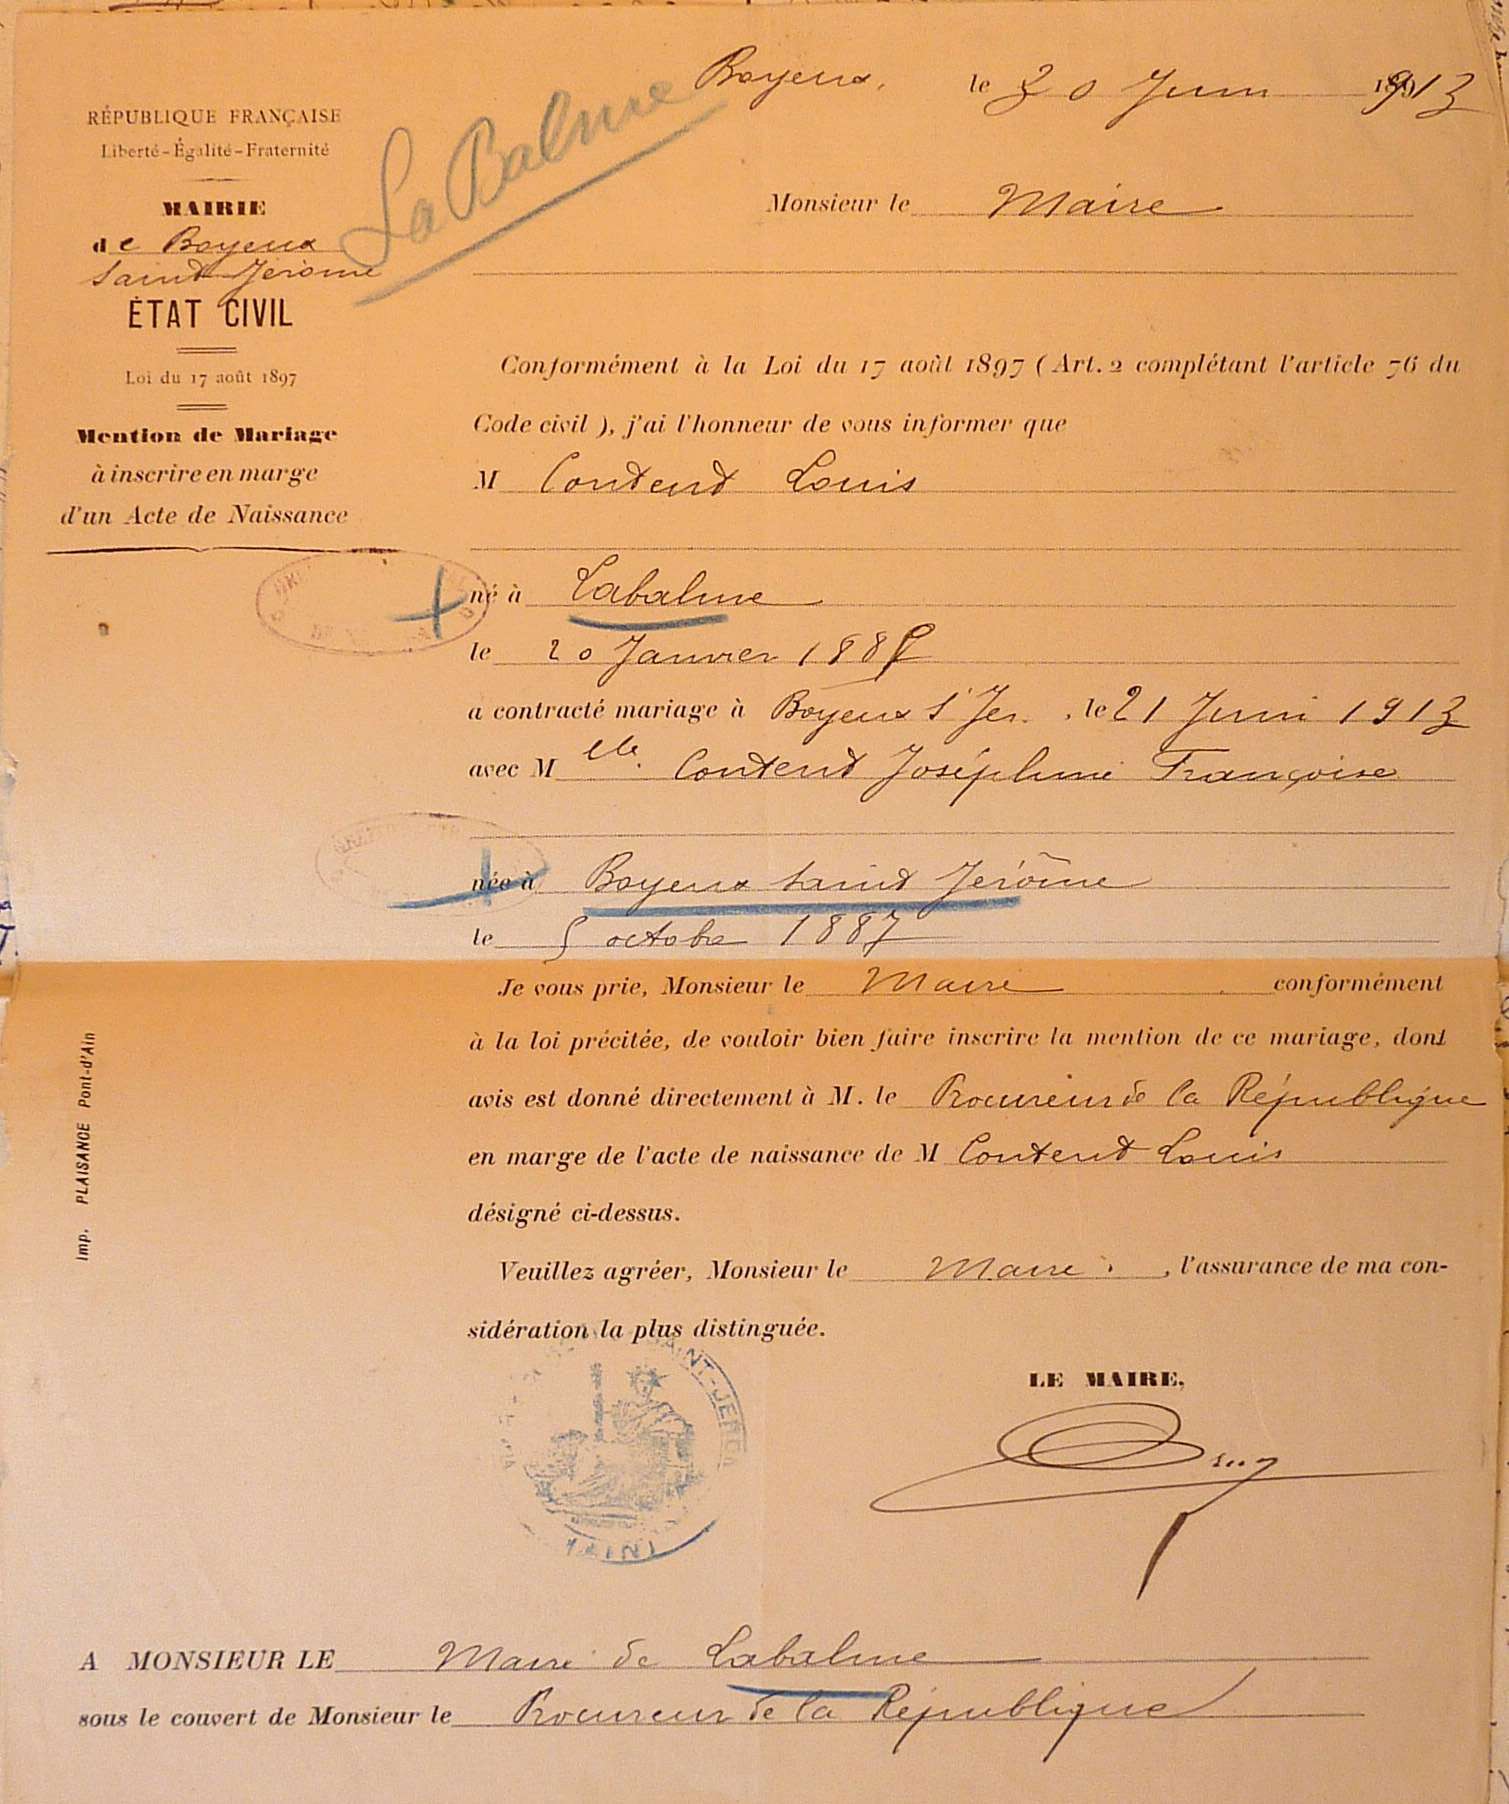 Boyeux, le 30 Juin 1913
RÉPUBLIQUE FRANÇAISE
Liberté-Égalité-Fraternité
La Balme
MAIRIE
de Boyeux
Saint Jérôme
ÉTAT CIVIL
Loi du 17 août 1897
Mention de Mariage
à inscrire en marge
d'un Acte de Naissance
Monsieur le Maire
Conformément à la Loi du 17 août 1897 (Art. 2 complétant l'article 76 du
Code civil), j'ai l'honneur de vous informer que
M Contend Louis
né à Labalme
le 20 Janvier 188
a contracté mariage à Boyeux St Jér. , le 21 Juin 1913
avec Melle. Contend Joséphine Françoise
née à Boyeux Saint Jérôme
le 5 octobre 1887
Je vous prie, Monsieur le Maire conformément
à la loi précitée, de vouloir bien faire inscrire la mention de ce mariage, dont
avis est donné directement à M. le Procureur de la République
en marge de l'acte de naissance de M Contend Louis
désigné ci-dessus.
Veuillez agréer, Monsieur le Maire , l'assurance de ma con-
sidération la plus distinguée.
LE MAIRE,
SAINT-JÉRÔ
(AIN)
A MONSIEUR LE Maire de Labalme
sous le couvert de Monsieur le Procureur de la République
Imp. PLAISANCE Pont-d'Ain